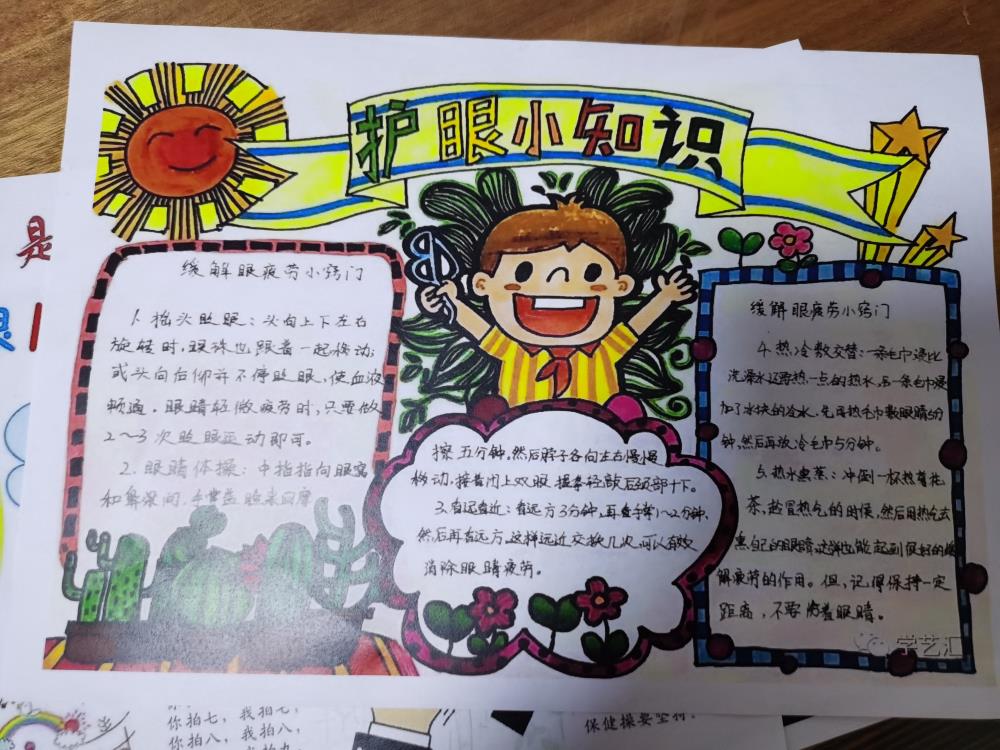 护眼小知识
缓解眼疲劳小窍门
1. 抬头眨眼：头向上下左右
旋转时，眼珠也跟着一起移动；
或头向后仰并不停眨眼，使血液
顺通。眼睛轻微疲劳时，只要做
2~3次眨眼运动即可。
2. 眼睛体操：中指指向眼窝
和鼻梁间，手掌盖脸来回摩
擦五分钟。然后脖子各向左右慢慢
移动，接着闭上双眼，握拳轻敲后颈部十下。
3.看远看近：看远方3分钟，再看手掌1~2分钟，
然后再看远方。这样远近交换几次，可以有效
消除眼睛疲劳。
缓解眼疲劳小窍门
4.热冷敷交替：一条毛巾浸比
洗澡水还要热一点的热水，另一条毛巾浸
加了冰块的冷水，先用热毛巾敷眼睛5分
钟，然后再敷冷毛巾5分钟。
5.热水熏蒸：冲倒一杯热菊花
茶，趁冒热气的时候，然后用热气去
熏自己的眼睛，这样也能起到很好的缓
解疲劳的作用。但，记得保持一定
距离，不要烫着眼睛。
学艺汇
是
你拍七，我拍七，
你拍八，我拍八，
保健操要坚持。